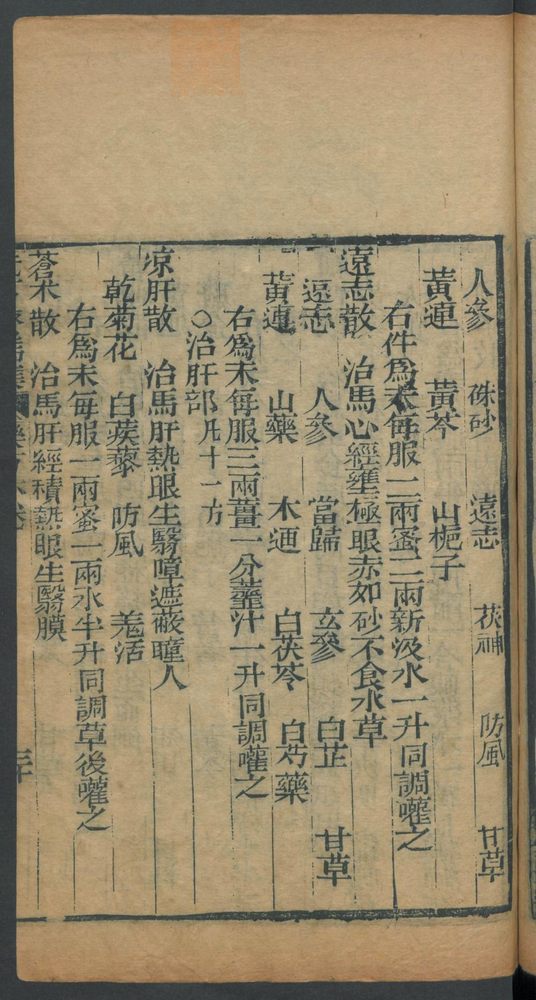 人參 硃砂 遠志 茯神 防風 甘草
黃連 黃芩 山梔子
右件爲末每服二兩蜜二兩新汲水一升同調嚾之
遠志散 治馬心經壅極眼赤如砂不食水草
遠志 人參 當歸 玄參 白芷 甘草
黃連 山藥 木通 白茯苓 白芍藥
右爲末每服三兩薑一分虀汁一升同調嚾之
○治肝部凡十一方
凉肝散 治馬肝熱眼生翳暲遮蔽瞳人
乾菊花 白蒺藜 防風 羌活
右爲末每服一兩蜜一兩水半升同調草後嚾之
蒼术散 治馬肝經積熱眼生翳膜